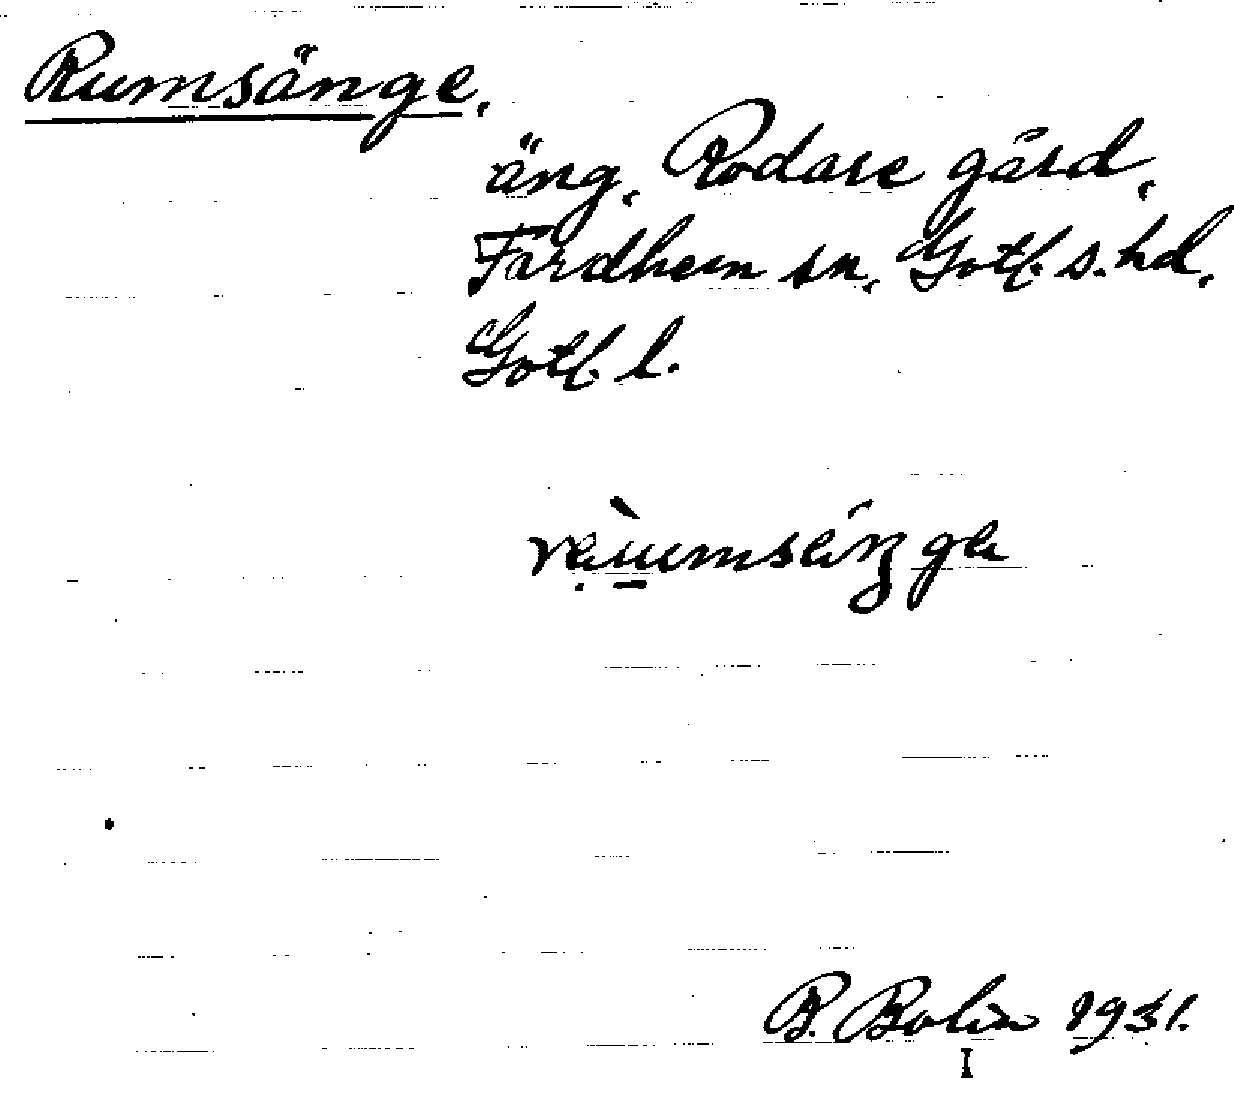 Rumsänge,
äng, Rodare gård,
Fardhem sn, Gotl. s. hd,
Gotl. l.
B. Bolin 1931.
I